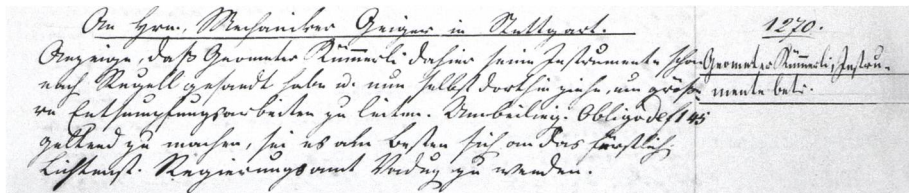 An Hrn. Mechaniker Geiger in Stuttgart.
Anzeige, daß Geometer Kümmerli dahier seine Instrumente schon
nach Rugell gesandt habe u. nun selbst dorthin gehe, um größe-
re Entsumpfungsarbeiten zu leiten. Obligo de f 145
geltend zu machen, sei es am Besten sich an das fürstlich
Lichtenst. Regierungsamt Vaduz zu wenden.
1270.
Geometer Kümmerli, Instru-
mente betr.